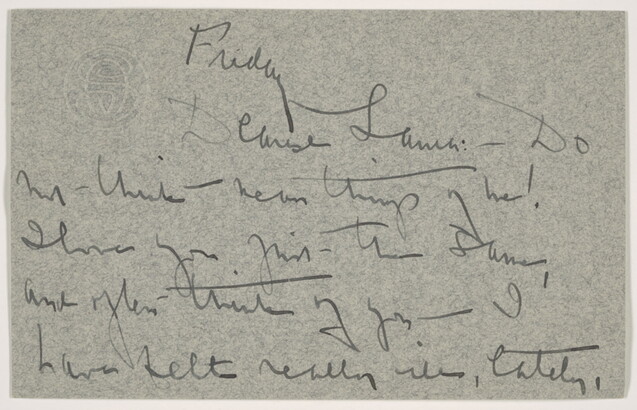 Friday
Dearest Laura: — Do
not think mean things of me!
I love you just the same,
and often think of you — I
have felt really ill, lately,